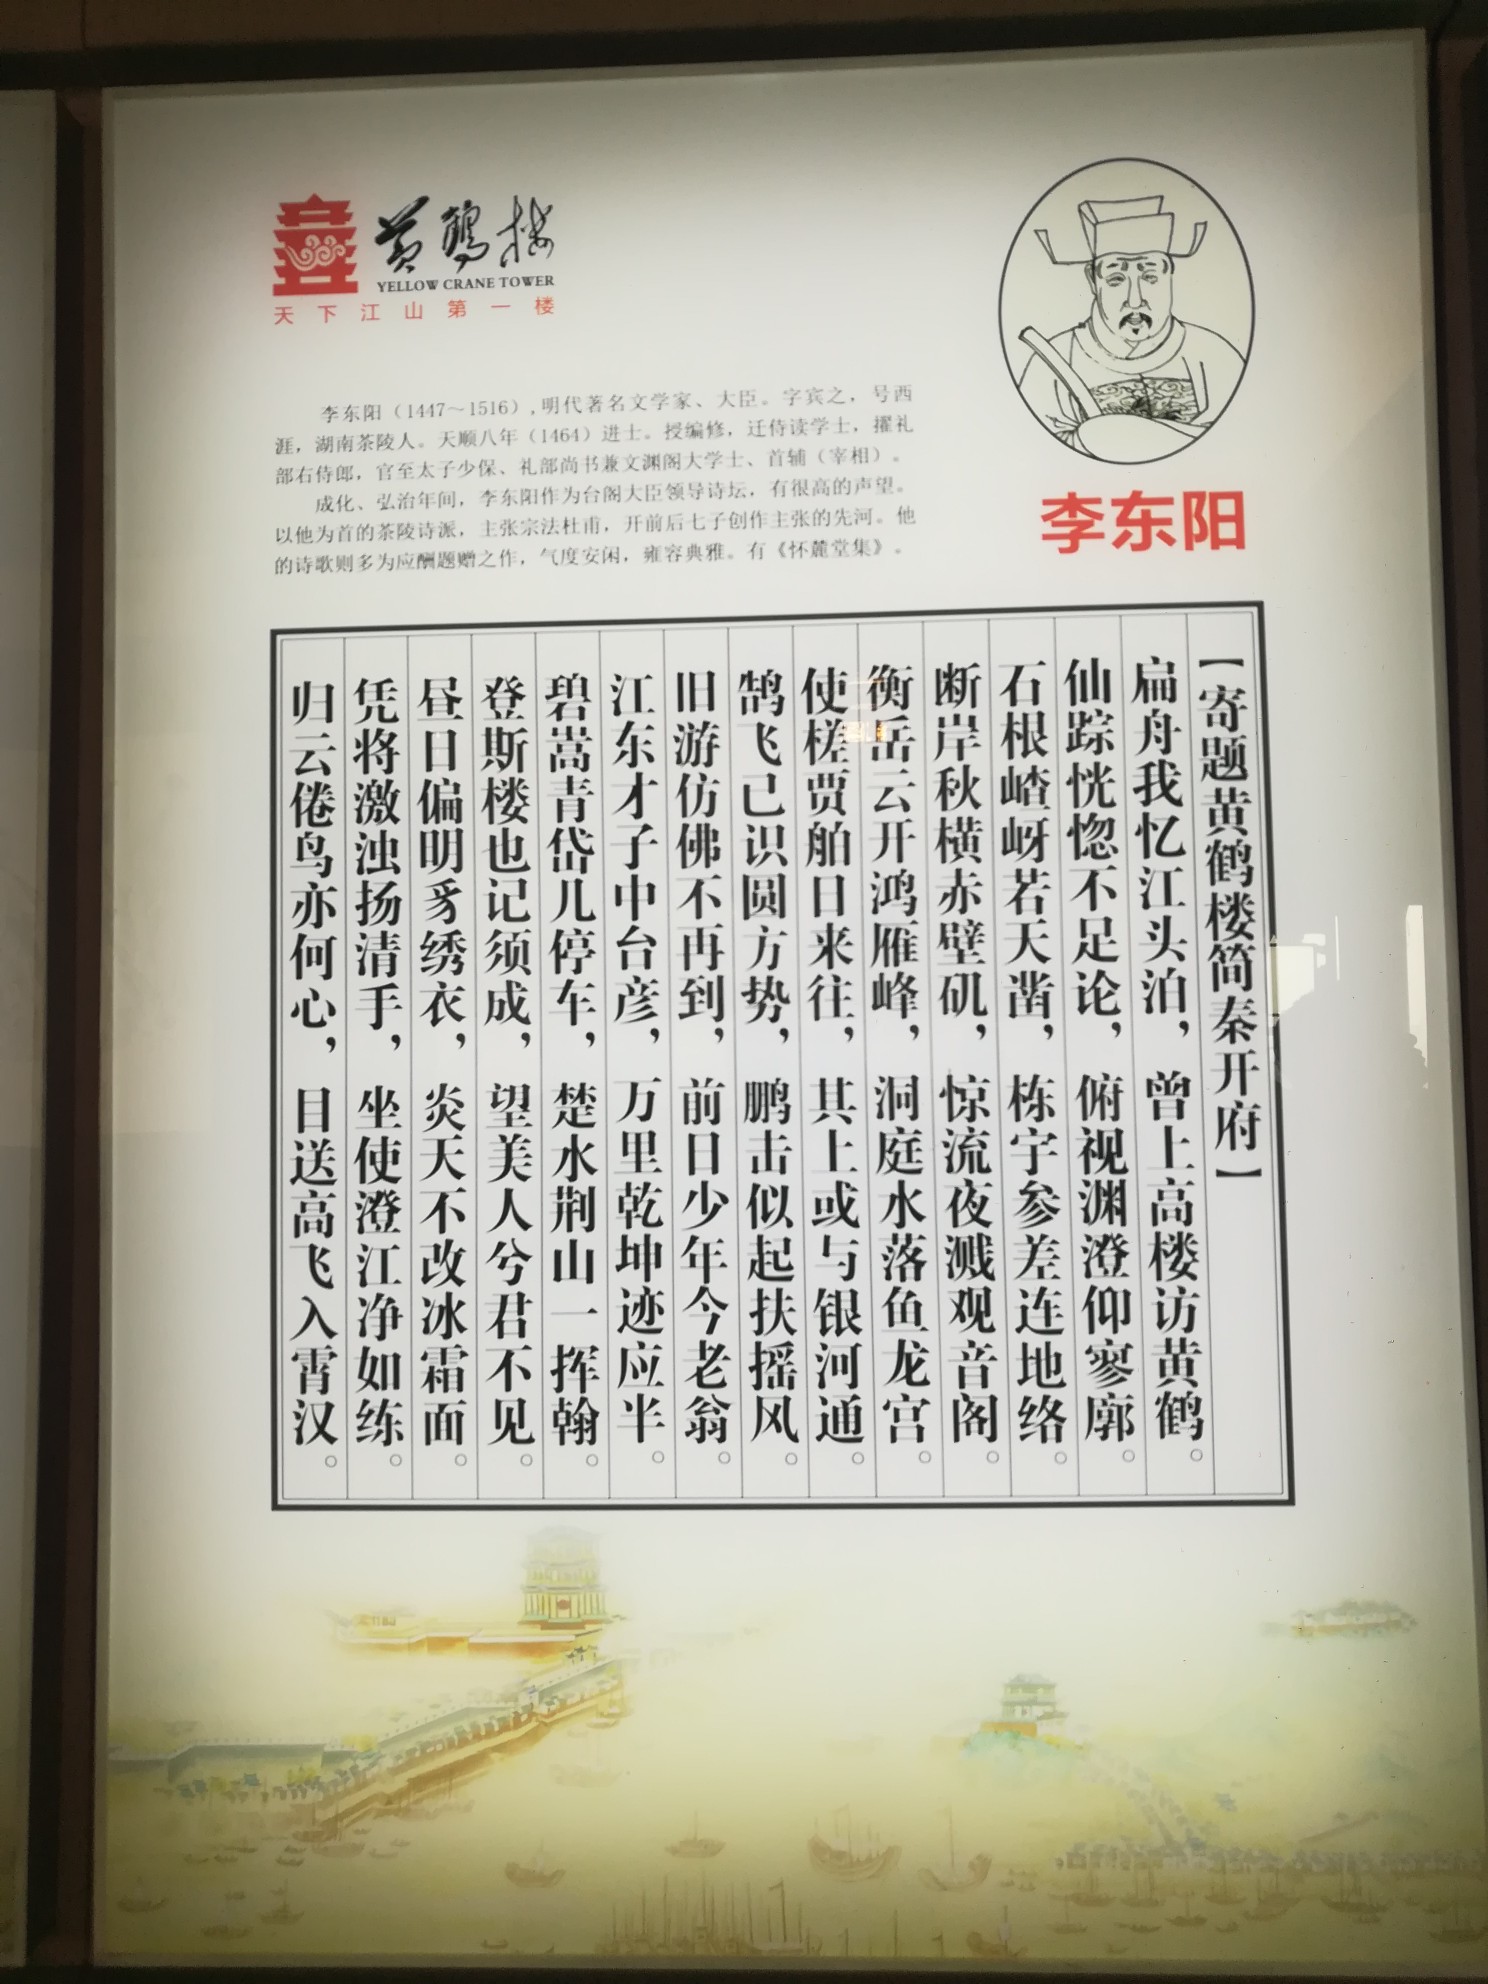 黄鹤楼
YELLOW CRANE TOWER
天下江山第一楼
李东阳（1447～1516），明代著名文学家、大臣。字宾之，号西
涯，湖南茶陵人。天顺八年（1464）进士。授编修，迁侍读学士，擢礼
部右侍郎，官至太子少保、礼部尚书兼文渊阁大学士、首辅（宰相）。
成化、弘治年间，李东阳作为台阁大臣领导诗坛，有很高的声望。
以他为首的茶陵诗派，主张宗法杜甫，开前后七子创作主张的先河。他
的诗歌则多为应酬题赠之作，气度安闲，雍容典雅。有《怀麓堂集》。
李东阳
【寄题黄鹤楼简秦开府】
扁舟我忆江头泊，曾上高楼访黄鹤。
仙踪恍惚不足论，俯视渊澄仰寥廓。
石根嵖岈若天凿，栋宇参差连地络。
断岸秋横赤壁矶，惊流夜溅观音阁。
衡岳云开鸿雁峰，洞庭水落鱼龙宫。
使槎贾舶日来往，其上或与银河通。
鹄飞已识圆方势，鹏击似起扶摇风。
旧游仿佛不再到，前日少年今老翁。
江东才子中台彦，万里乾坤迹应半。
碧嵩青岱几停车，楚水荆山一挥翰。
登斯楼也记须成，望美人兮君不见。
昼日偏明豸绣衣，炎天不改冰霜面。
凭将激浊扬清手，坐使澄江净如练。
归云倦鸟亦何心，目送高飞入霄汉。